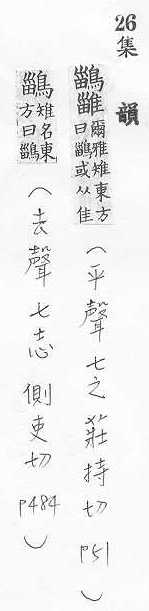 26 集韻
鶅雖爾雅雉東方曰鶅或从隹（平聲七之莊持切 P51）
鶅雉名東方曰鶅（去聲七志側吏切 P484）